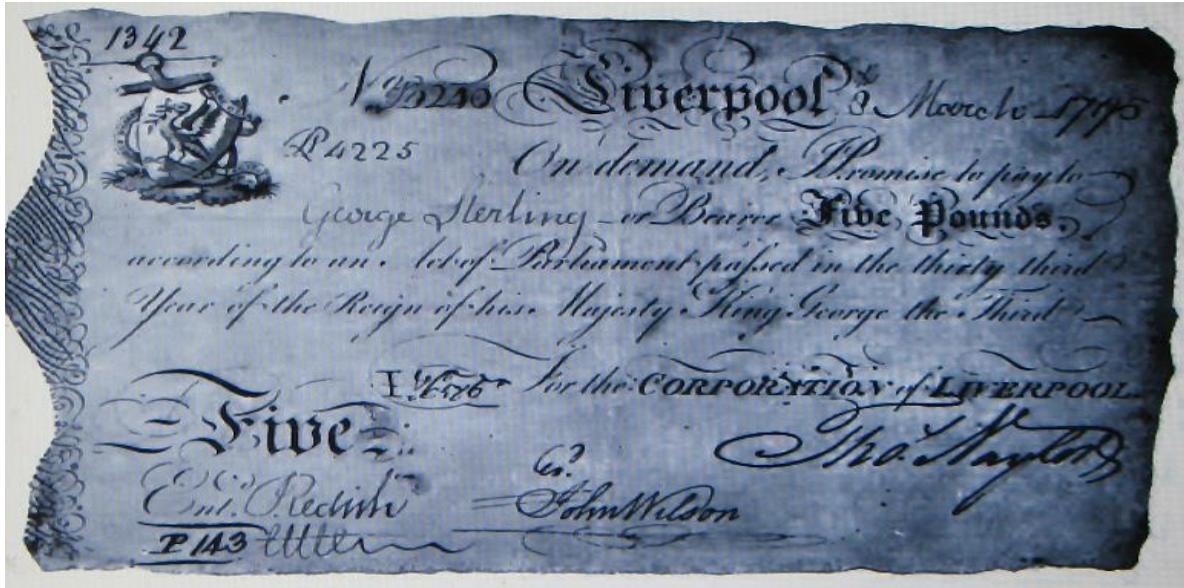 1342
Liverpool 8 March
P 4225
On demand, I Promise to pay to
George Sterling or Bearer Five Pounds.
according to an Act of Parliament passed in the thirty third
Year of the Reign of his Majesty King George the Third
For the CORPORATION of LIVERPOOL.
Five
Thos. Naylor
Ent. Redish
John Wilson
P 143